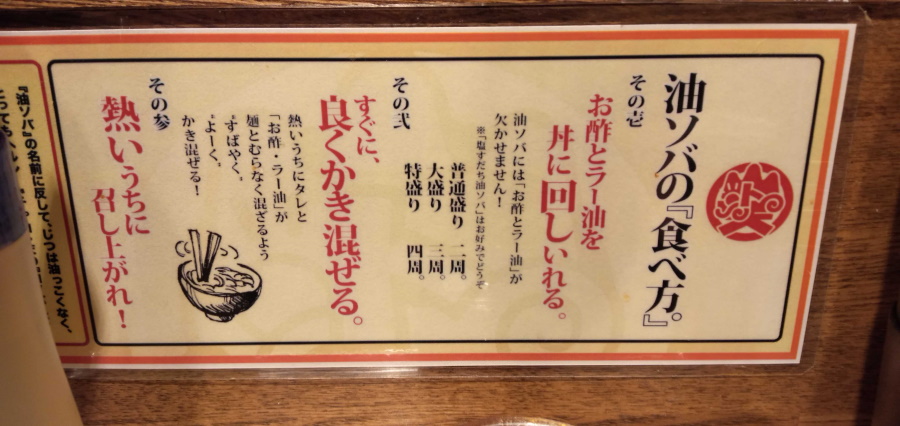 油ソバの『食べ方。』
その壱
お酢とラー油を
丼に回しいれる。
油ソバには「お酢とラー油」が
欠かせません！
※「塩すだち油ソバ」はお好みでどうぞ
普通盛り 二周。
大盛り 三周。
特盛り 四周。
その弐
すぐに、
良くかき混ぜる。
熱いうちにタレと
「お酢・ラー油」が
麺とむらなく混ざるよう
"すばやく"
"よーく"
かき混ぜる！
その参
熱いうちに
召し上がれ！
『油ソバ』の名前に反して、じつは油っこくなく、